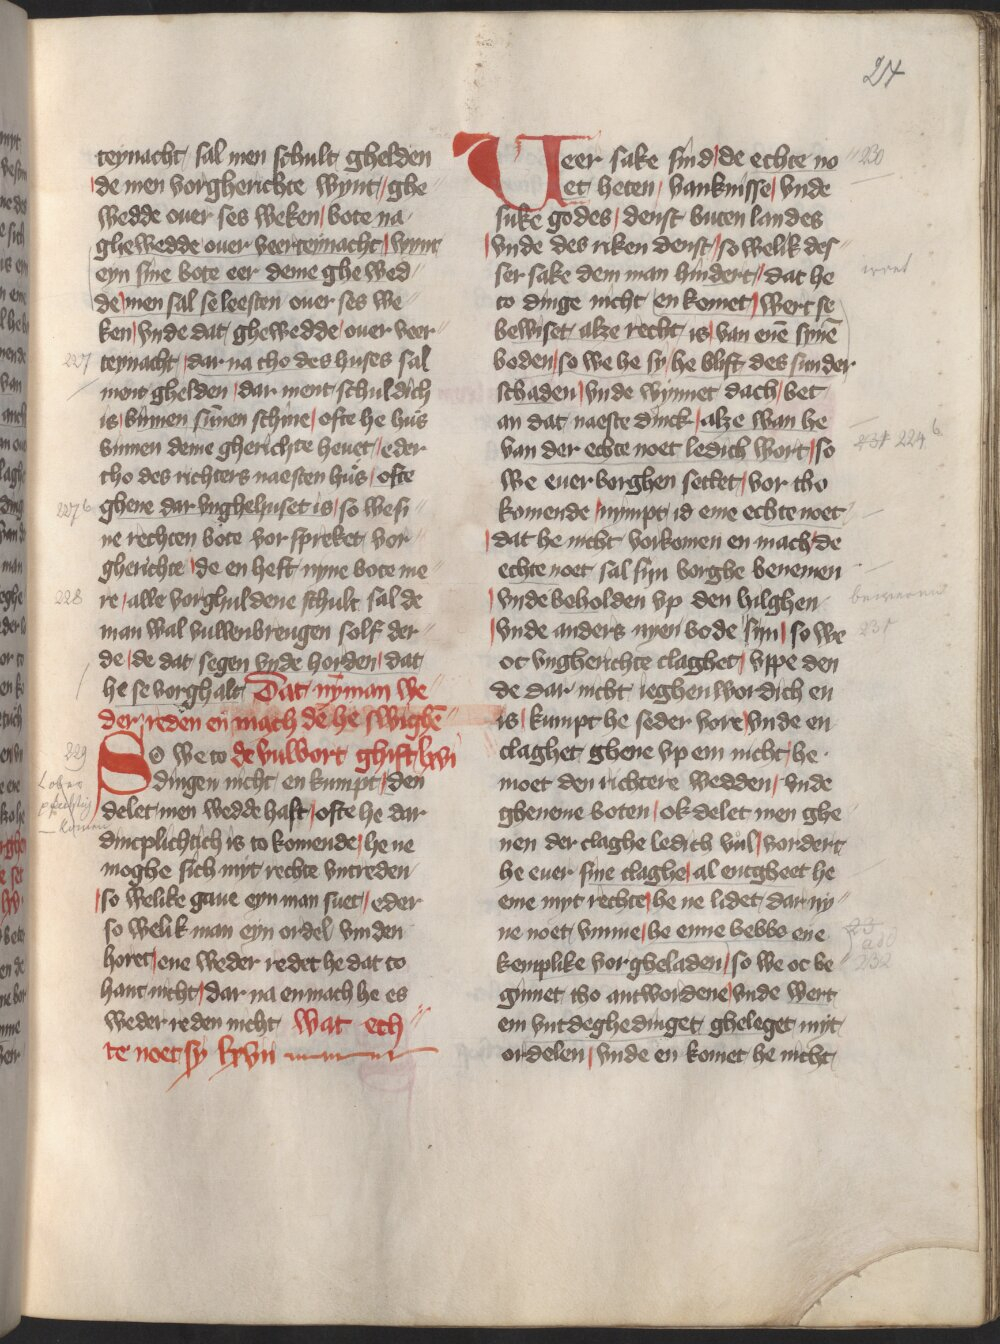 24
teynacht / sal men schult ghelden
de men vorgherichte wynt / ghe
wedde ouer ses weken / bote na
ghewedde ouer veerteynacht / wynt
eyn sine bote eer deme ghewed
de / men sal se leesten ouer ses we
ken / vnde dat ghewedde ouer veer
teynacht / dar na tho des huses sal
ment ghelden / dar ment schuldich
is / binnen sunnen schine / ofte he hus
binnen deme gherichte heuet / eder
tho des richters naesten hus / ofte
ghene dar vnghehuset is / so we si
ne rechten bote vor spreket vor
gherichte / de en heft nyne bote me
re / alle vorghuldene schult sal de
man wal vulwenbrengen solf der
de / de dat segen vnde horden / dat
he se vorghalt Dat nyman we
der reden en mach de he swighē
de vulwort ghift lxvi
So we to
dingen nicht en kumpt / den
delet men weddehaft / ofte he dar
dincplichtich is to komende / he ne
moghe sich myt rechte vntreden
so welike gaue eyn man suet / eder
so welik man eyn ordel vinden
horet / ene weder redet he dat to
hant nicht / dar na en mach he es
weder reden nicht Wat ech
te noet sy lxvii
Ueer sake sind / de echte no
et heten / vanknisse / vnde
suke godes / denst buten landes
vnde des riken denst / so welik des
ser sake dem man hindert / dat he
to dinge nicht en komet / wert se
bewiset alze recht is / van enē synē
boden / so we he sy / he blift des sunder
schaden / vnde wynnet dach / bet
an dat naeste dinck / alze wan he
van der echte noet ledich wort / so
we euer borghen settet / vor tho
komende / nympt id eme echte noet
dat he nicht vorkomen en mach / de
echte noet sal sijn borghe benemen
vnde beholden vp den hilghen
vnde anders nyen bode sijn / so we
oc vngherichte claghet / vppe den
de dar nicht ieghenwordich en
is / kumpt he seder vore / vnde en
claghet ghene vp em nicht / he
moet den richtere wedden / vnde
gheneme boten / ok delet men ghe
nen der claghe ledich vul / vordert
he euer sine claghe / al entgheet he
eme myt rechte / he ne lidet dar ny
ne noet vmme / he enne hebbe ene
kemplike vorgheladen / so we oc be
ginnet tho antwordene / vnde wert
em vntdeghedinget gheleget myt
ordelen / vnde en komet he nicht
227
227 b
228
229
230
231 224 b
231
232